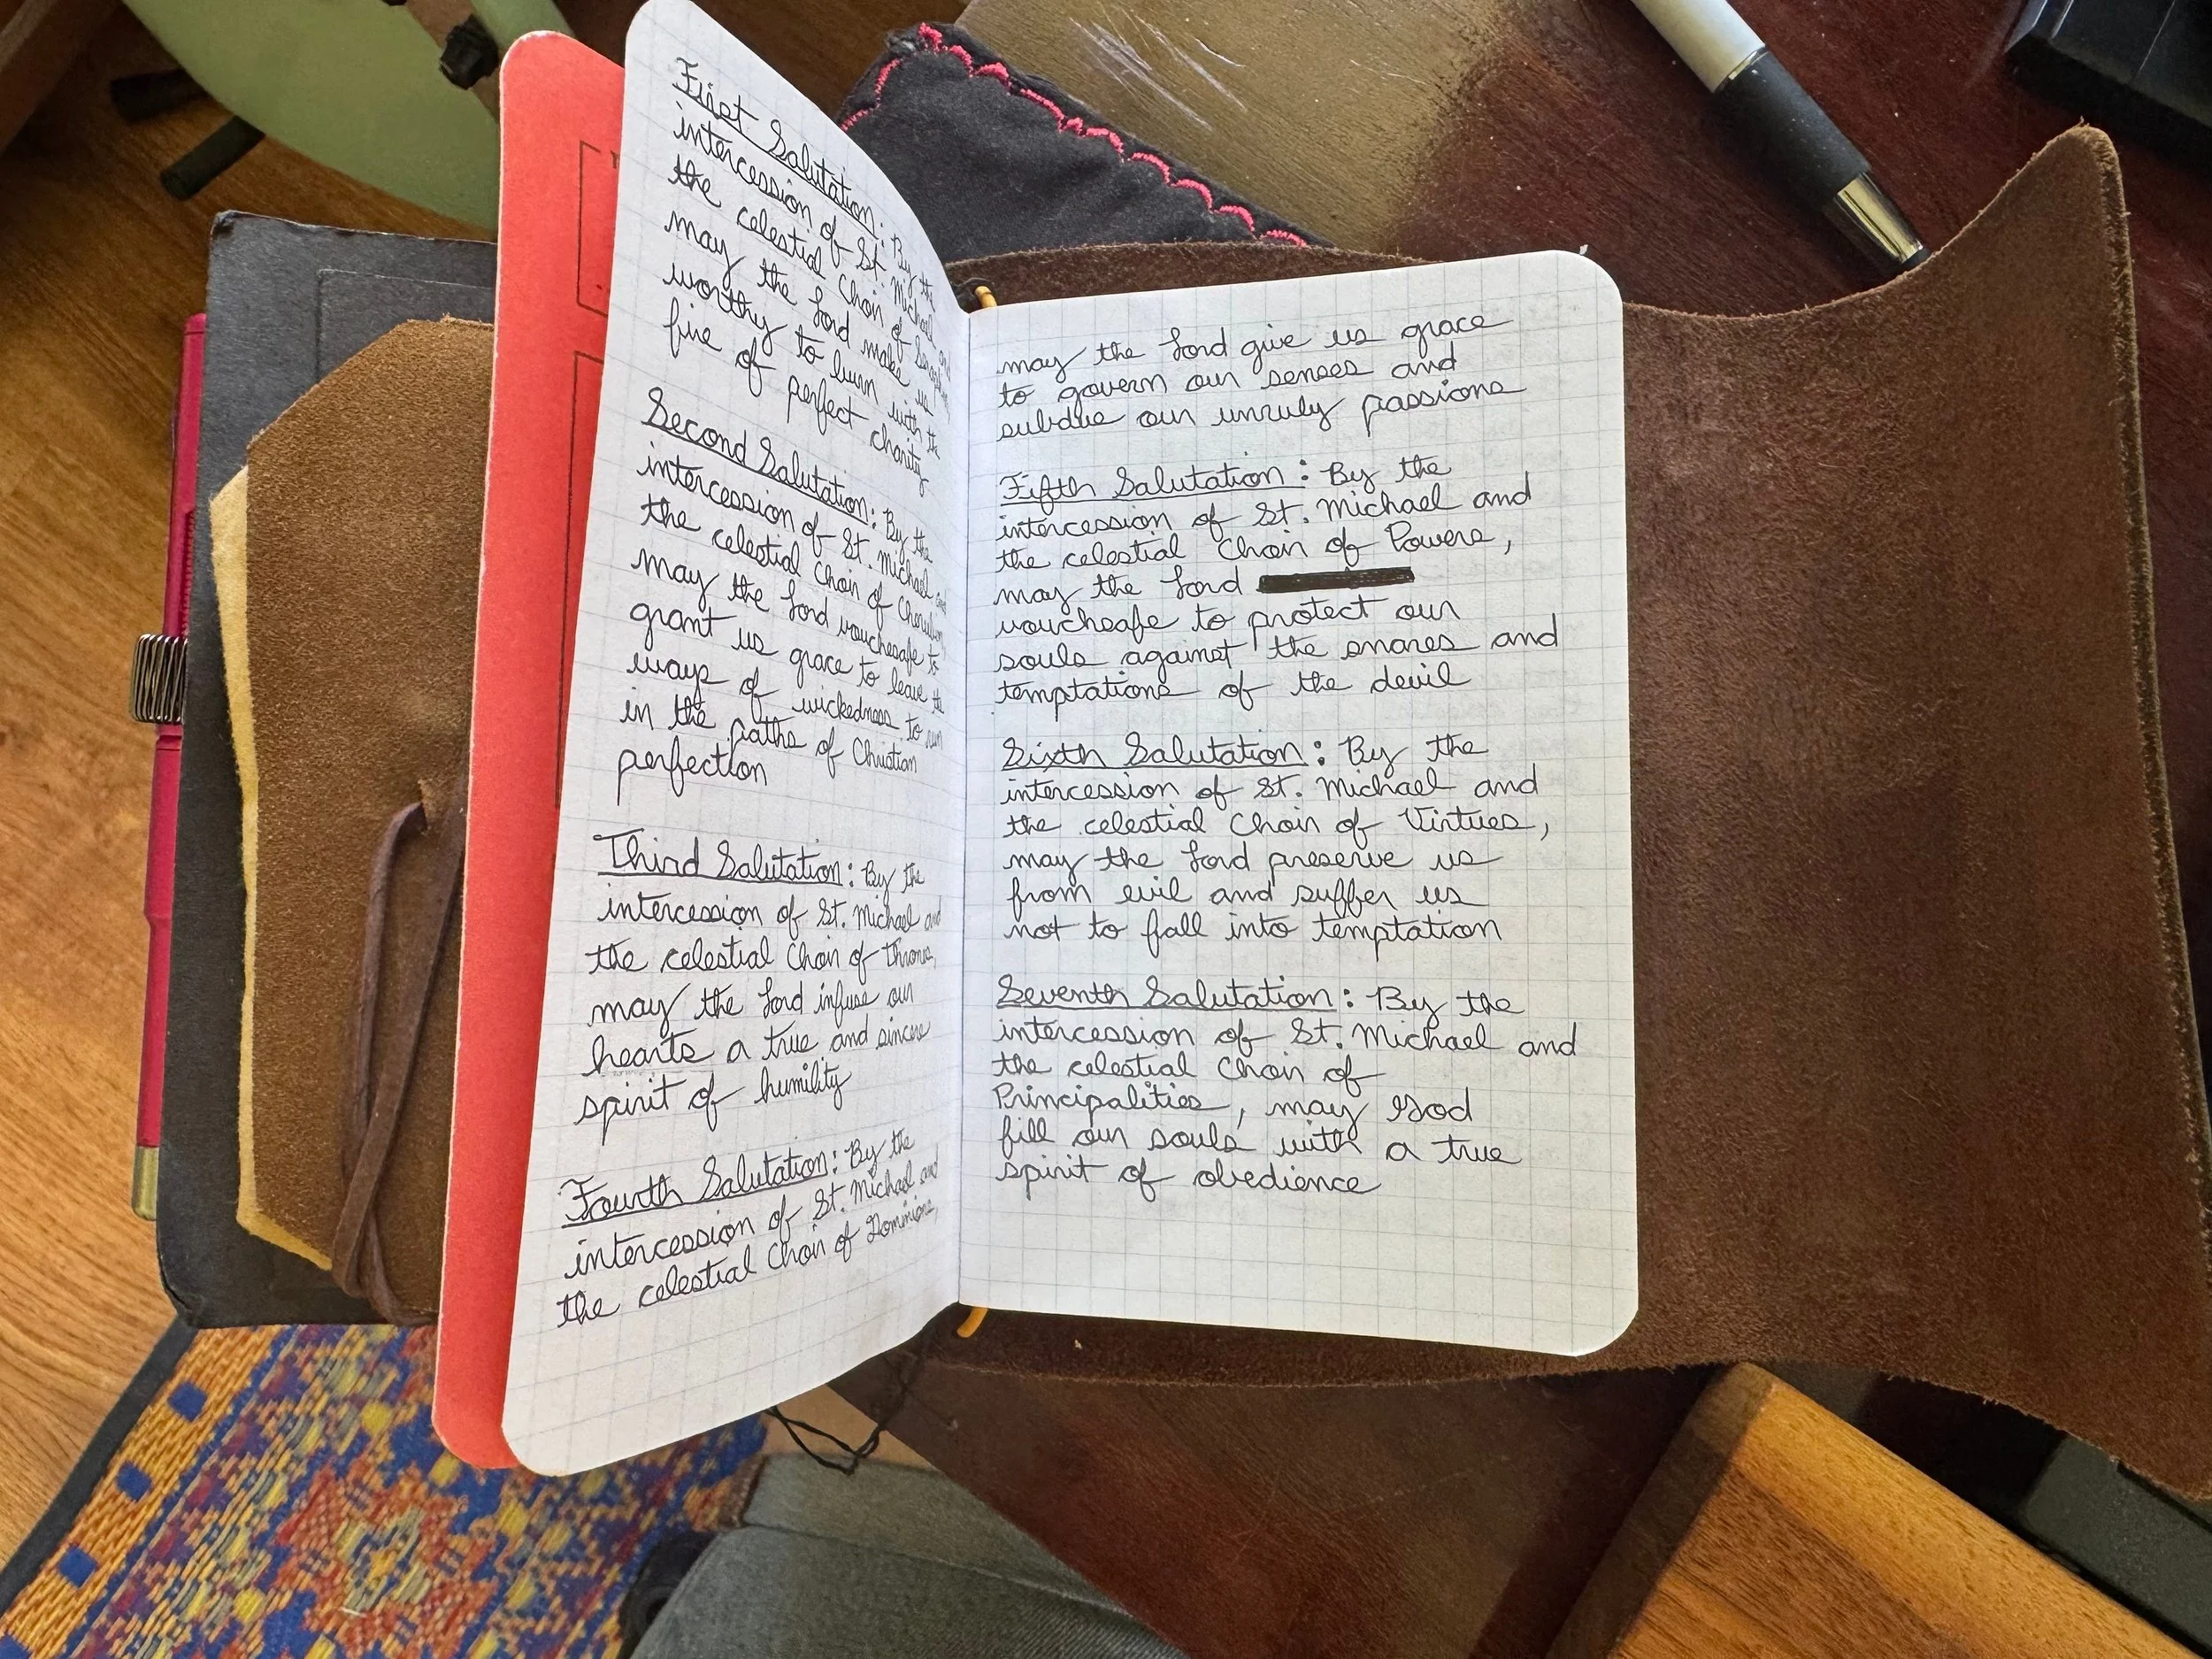 First Salutation: By the
intercession of St. Michael and
the celestial Choir of Seraphim
may the Lord make us
worthy to burn with the
fire of perfect charity
Second Salutation: By the
intercession of St. Michael and
the celestial Choir of Cherubim
may the Lord vouchesafe to
grant us grace to leave the
ways of wickedness to run
in the paths of Christian
perfection
Third Salutation: By the
intercession of St. Michael and
the celestial Choir of Thrones,
may the Lord infuse our
hearts a true and sincere
spirit of humility
Fourth Salutation: By the
intercession of St. Michael and
the celestial Choir of Dominions,
may the Lord give us grace
to govern our senses and
subdue our unruly passions
Fifth Salutation: By the
intercession of St. Michael and
the celestial Choir of Powers,
may the Lord
voucheafe to protect our
souls against the snares and
temptations of the devil
Sixth Salutation: By the
intercession of St. Michael and
the celestial Choir of Virtues,
may the Lord preserve us
from evil and suffer us
not to fall into temptation
Seventh Salutation: By the
intercession of St. Michael and
the celestial Choir of
Principalities, may God
fill our souls with a true
spirit of obedience